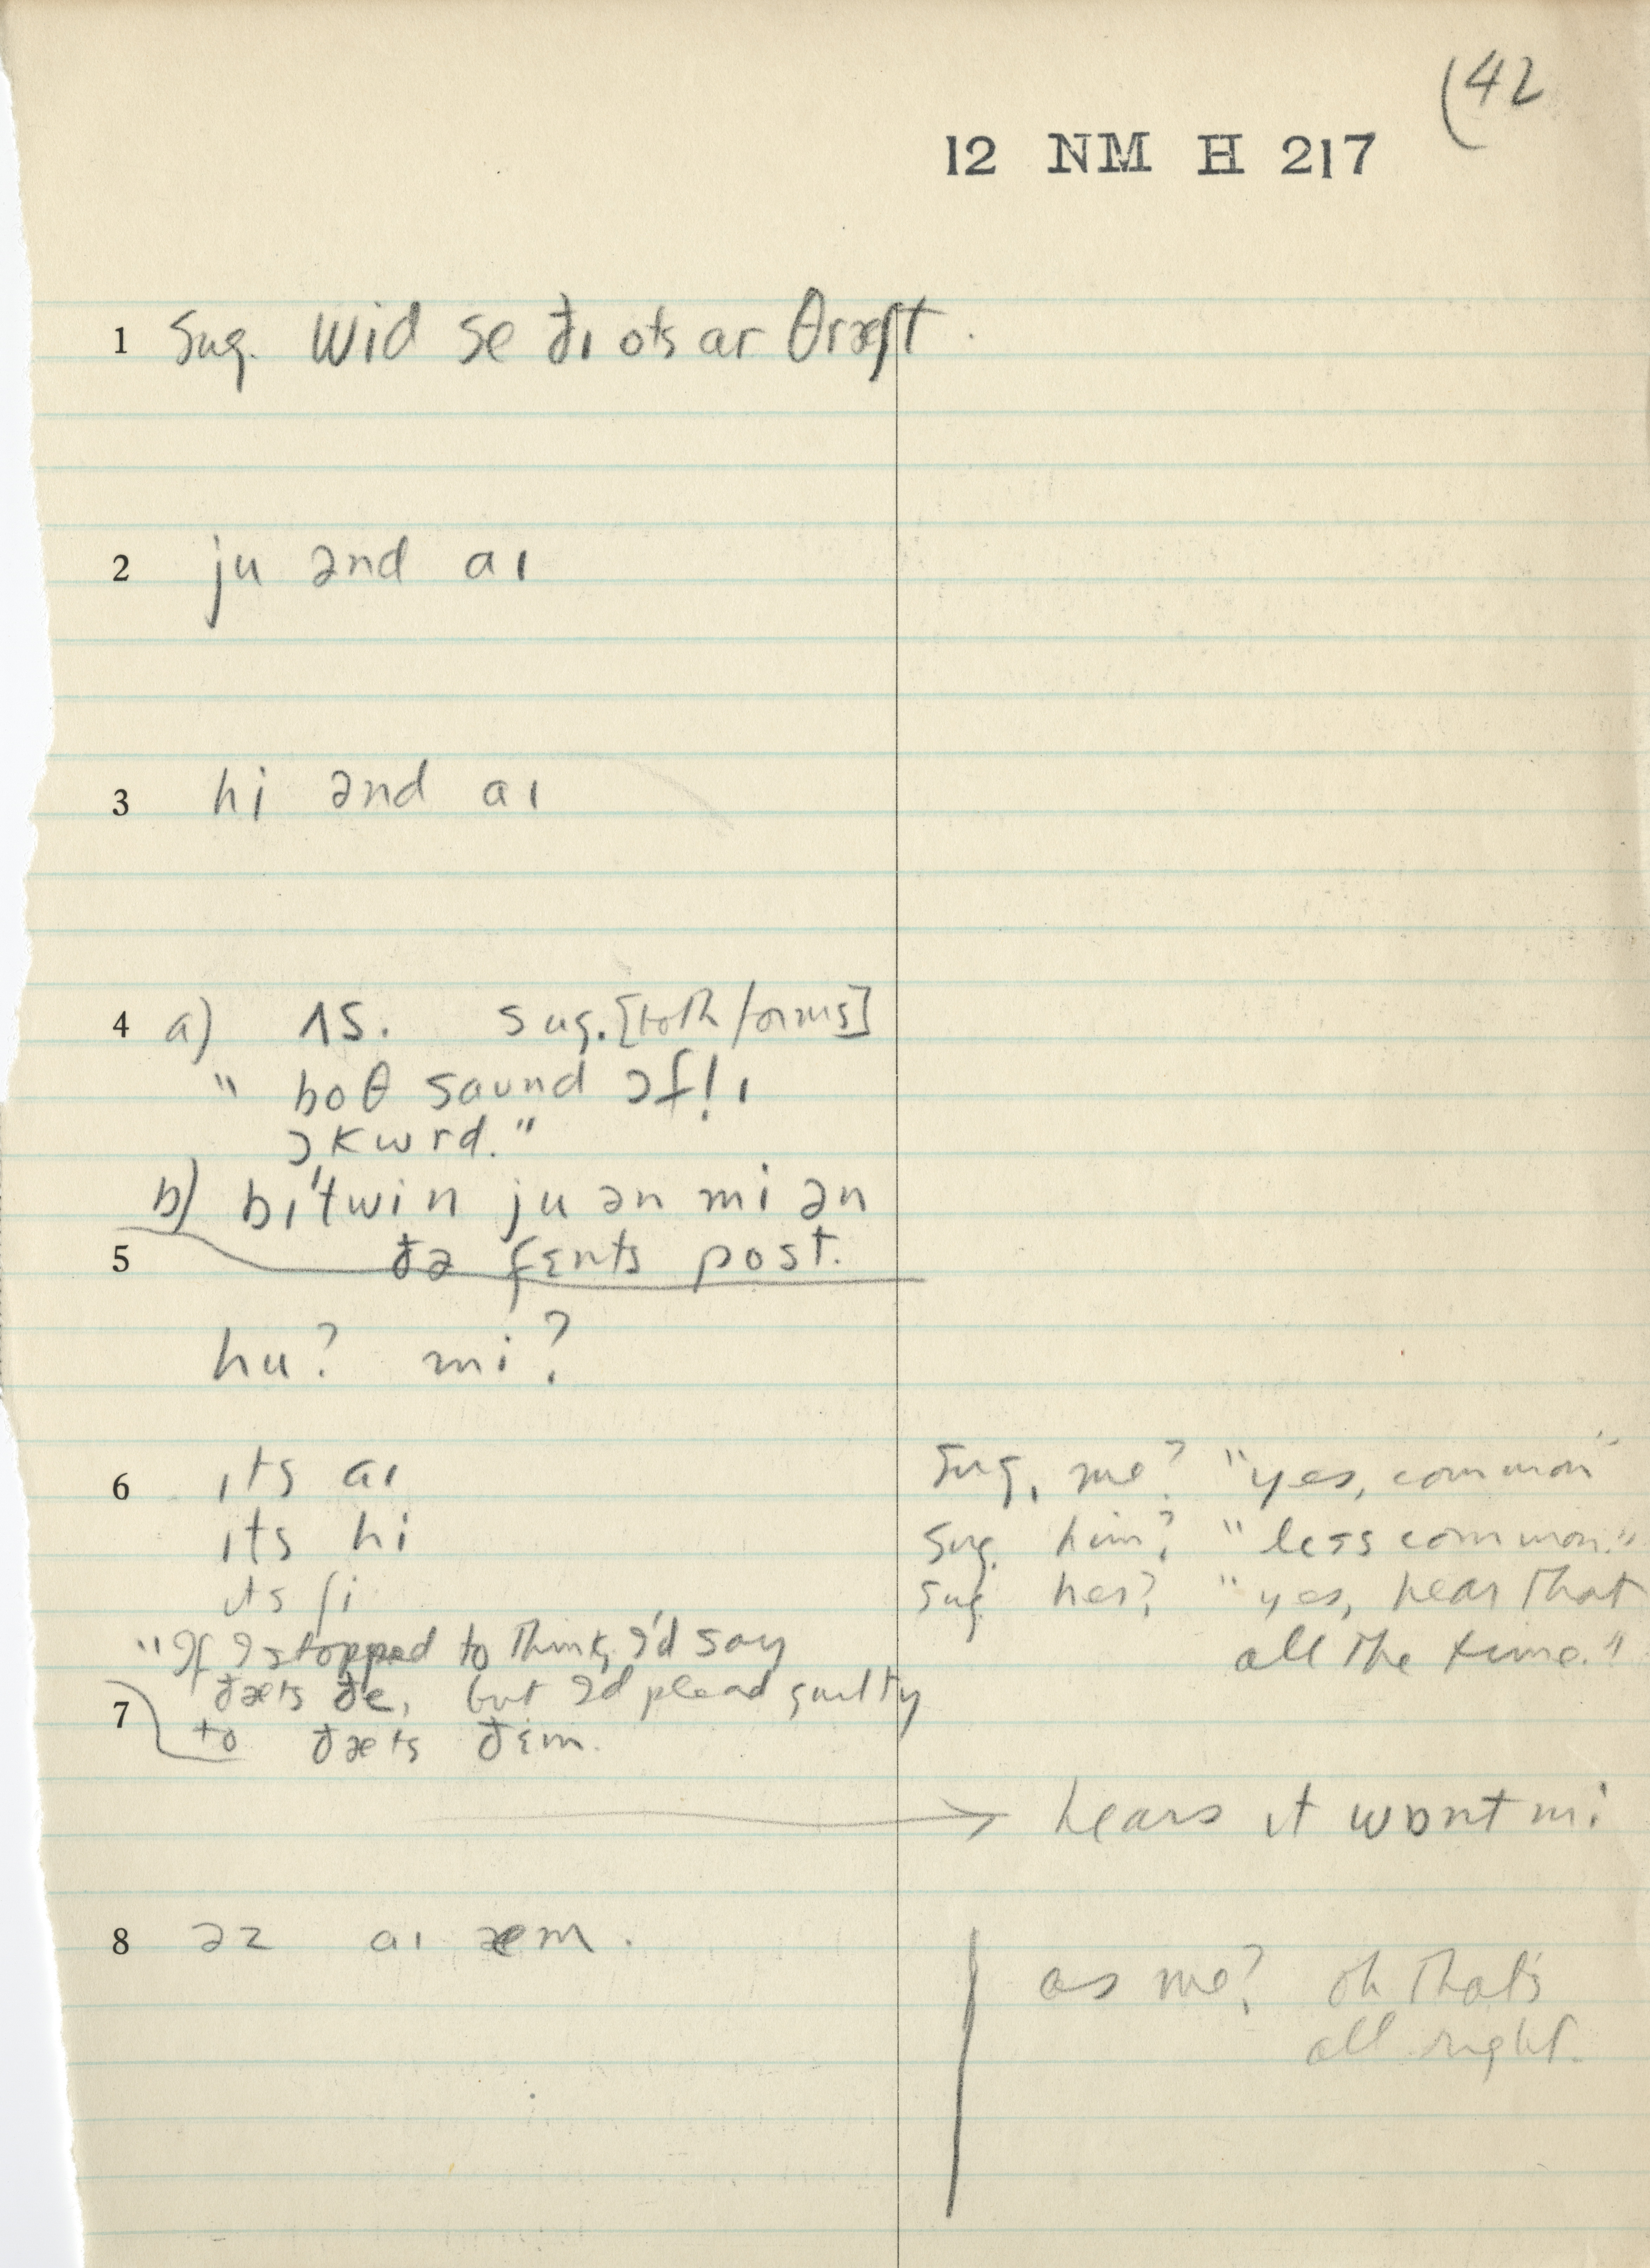 (42
12 NM H 217
1 Sug. wid se đɪ ots ar θræʃt.
2 ju ənd aɪ
3 hi ənd aɪ
4 a) ʌs. sug. [both forms]
" boθ saund ɔf!ɪ
ɔkwrd."
b) bɪ'twin ju ən mi ən
5 đə fɛnts post.
hu? mi?
6 ɪts aɪ Sug. me? "yes, common"
ɪts hi Sug. him? "less common."
ɪts ʃi Sug. her? "yes, hear that
all the time."
"If I stopped to think, I'd say
đæts đe, but I'd plead guilty
7 to đæts đɛm.
→ hears it wont mi
8 əz aɪ æm.
as me? oh that's
all right.